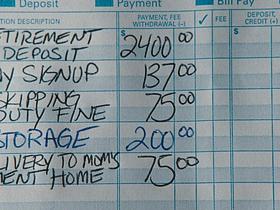 Deposit Payment Bill Pay
TRANSACTION DESCRIPTION PAYMENT, FEE WITHDRAWAL (–) ✓ FEE DEPOSIT, CREDIT (+)
ETIREMENT
DEPOSIT $2400 00
SIGNUP 137 00
SKIPPING
DUTY FINE 75 00
STORAGE 200 00
LIVERY TO MOM'S
MENT HOME 75 00